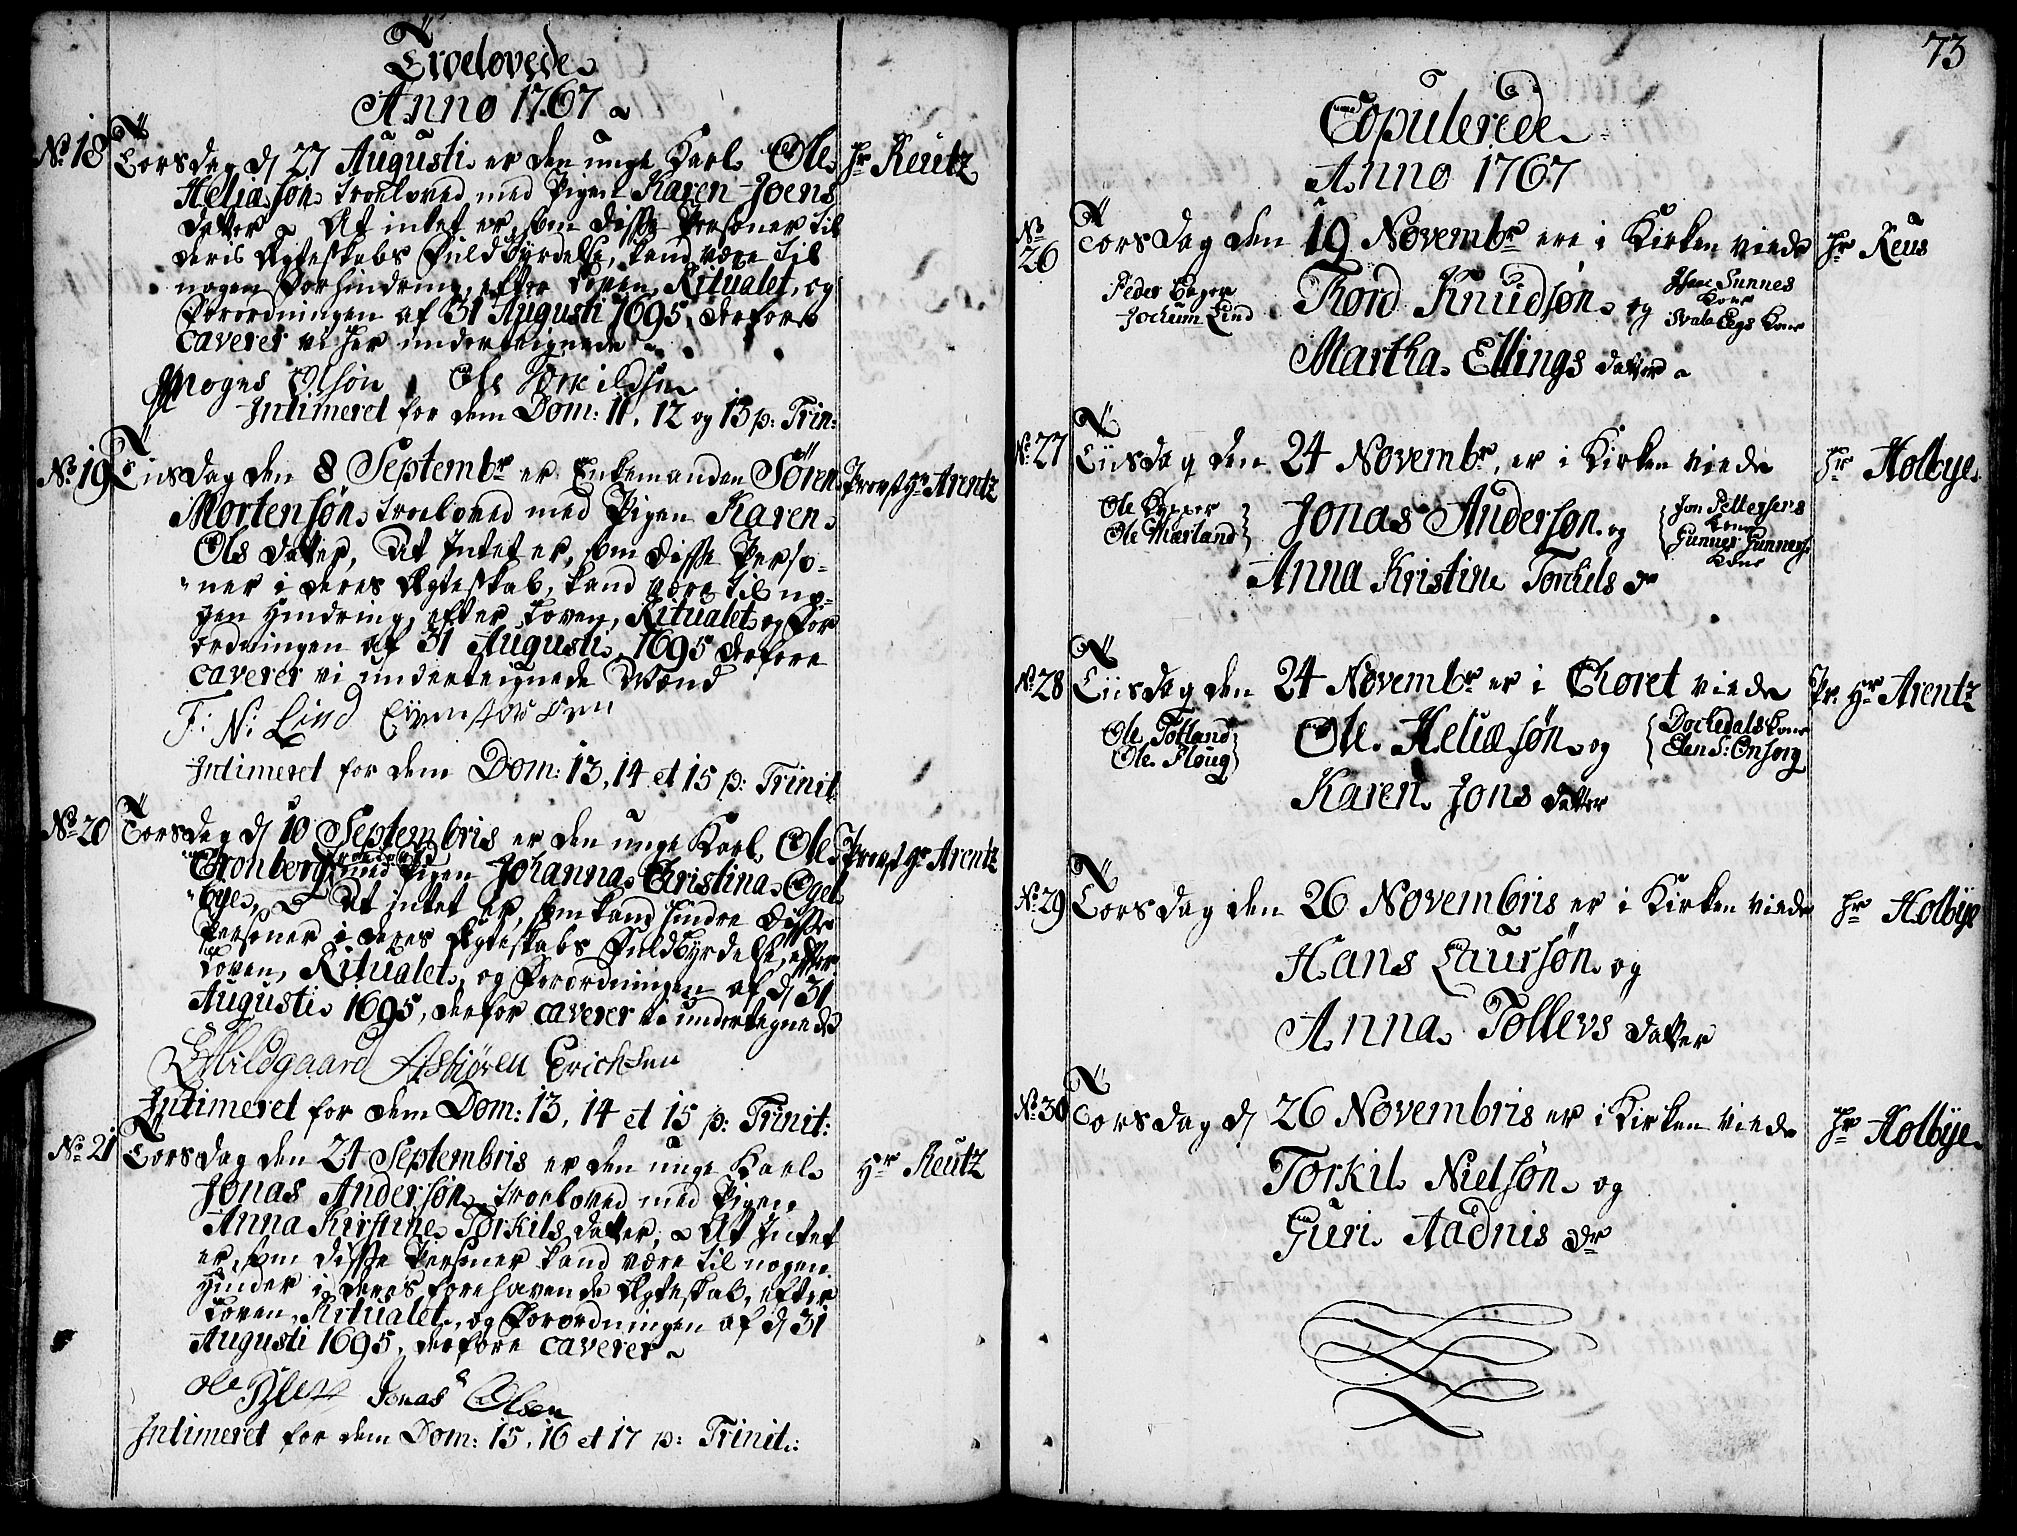 Troelovede
Anno 1767
No 18 Torsdag d 27 Augusti er den unge Karl Ole Hr Reutz
Heliæsøn troeloved med Pigen Karen Joens
datter At intet er, som disse Personer til
deris Ægteskabs Fuldbyrdelse, kand være til
nogen Forhindring, efter Loven, Ritualet, og
Forordningen af 31 Augusti 1695, derfore
caverer vi her underteignede
Mogns Olsøn Ole Torkildsen
Intimeret for dem Dom: 11, 12 og 13 p: Trin:
No 19 Tiisdag den 8 Septembr er Enkemanden Søren Provst Hr Arentz
Mortensøn troeloved med Pigen Karen
Ols datter, At Intet er, som disse Perso-
ner i deres Ægteskab, kand være til no-
gen Hindring, efter Loven, Ritualet og For
ordningen af 31 Augusti 1695 derfore
caverer vi underteignede Mænd
F: N: Lind
Intimeret for dem Dom: 13, 14 et 15 p: Trinit
No 20 Torsdag d 10 Septembris er den unge Karl Ole Provst Hr Arentz
Cronberg troeloved med Pigen Johanna Christina Ogel
bye, At Intet er, som kand hindre disse
Personer i deres Ægteskabs Fuldbyrdelse, efter
Loven, Ritualet, og Forordningen af d 31
Augusti 1695, derfor caverer vi undertegnede
Hildgaard Asbiøren Erichsen
Intimeret for dem Dom: 13, 14 et 15 p: Trinit:
No 21 Torsdag den 24 Septembris er den unge Karl Hr Reutz
Jonas Andersøn troeloved med Pigen
Anna Kirstine Torkils datter, At Intet
er, som disse Personer kand være til nogen
Hinder i deres forehavende Ægteskab, efter
Loven, Ritualet, og Forordningen af d 31
Augusti 1695, derfore caverer
Ole Jonas Olsen
Intimeret for dem Dom: 15, 16 et 17 p: Trinit:
73
Copulerede
Anno 1767
No 26 Torsdag den 19 Novembr ere i Kirken viede Hr Reus
Peder
Jochum Lind
Thord Knudsøn og
Sunnes
Kone
Kone
Martha Ellings datter
No 27 Tiisdag den 24 Novembr, er i Kirken viede Hr Holbye
Ole
Ole Mæland
Jonas Andersøn og
Jon Pettersens
Kone
Gunner Gunners
Kone
Anna Kristine Torkils Dr
No 28 Tiisdag den 24 Novembr er i Choret viede Pr. Hr Arentz
Ole Totland
Ole Ploug
Ole Heliæsøn og
Dochedals Kone
Elen S: Onsorg
Karen Jons datter
No 29 Torsdag den 26 Novembris er i Kirken viede Hr Holbye
Hans Laursøn og
Anna Tollevs datter
No 30 Torsdag d 26 Novembris er i Kirken viede Hr Holbye
Torkil Nielsøn og
Guri Aadnis Dr